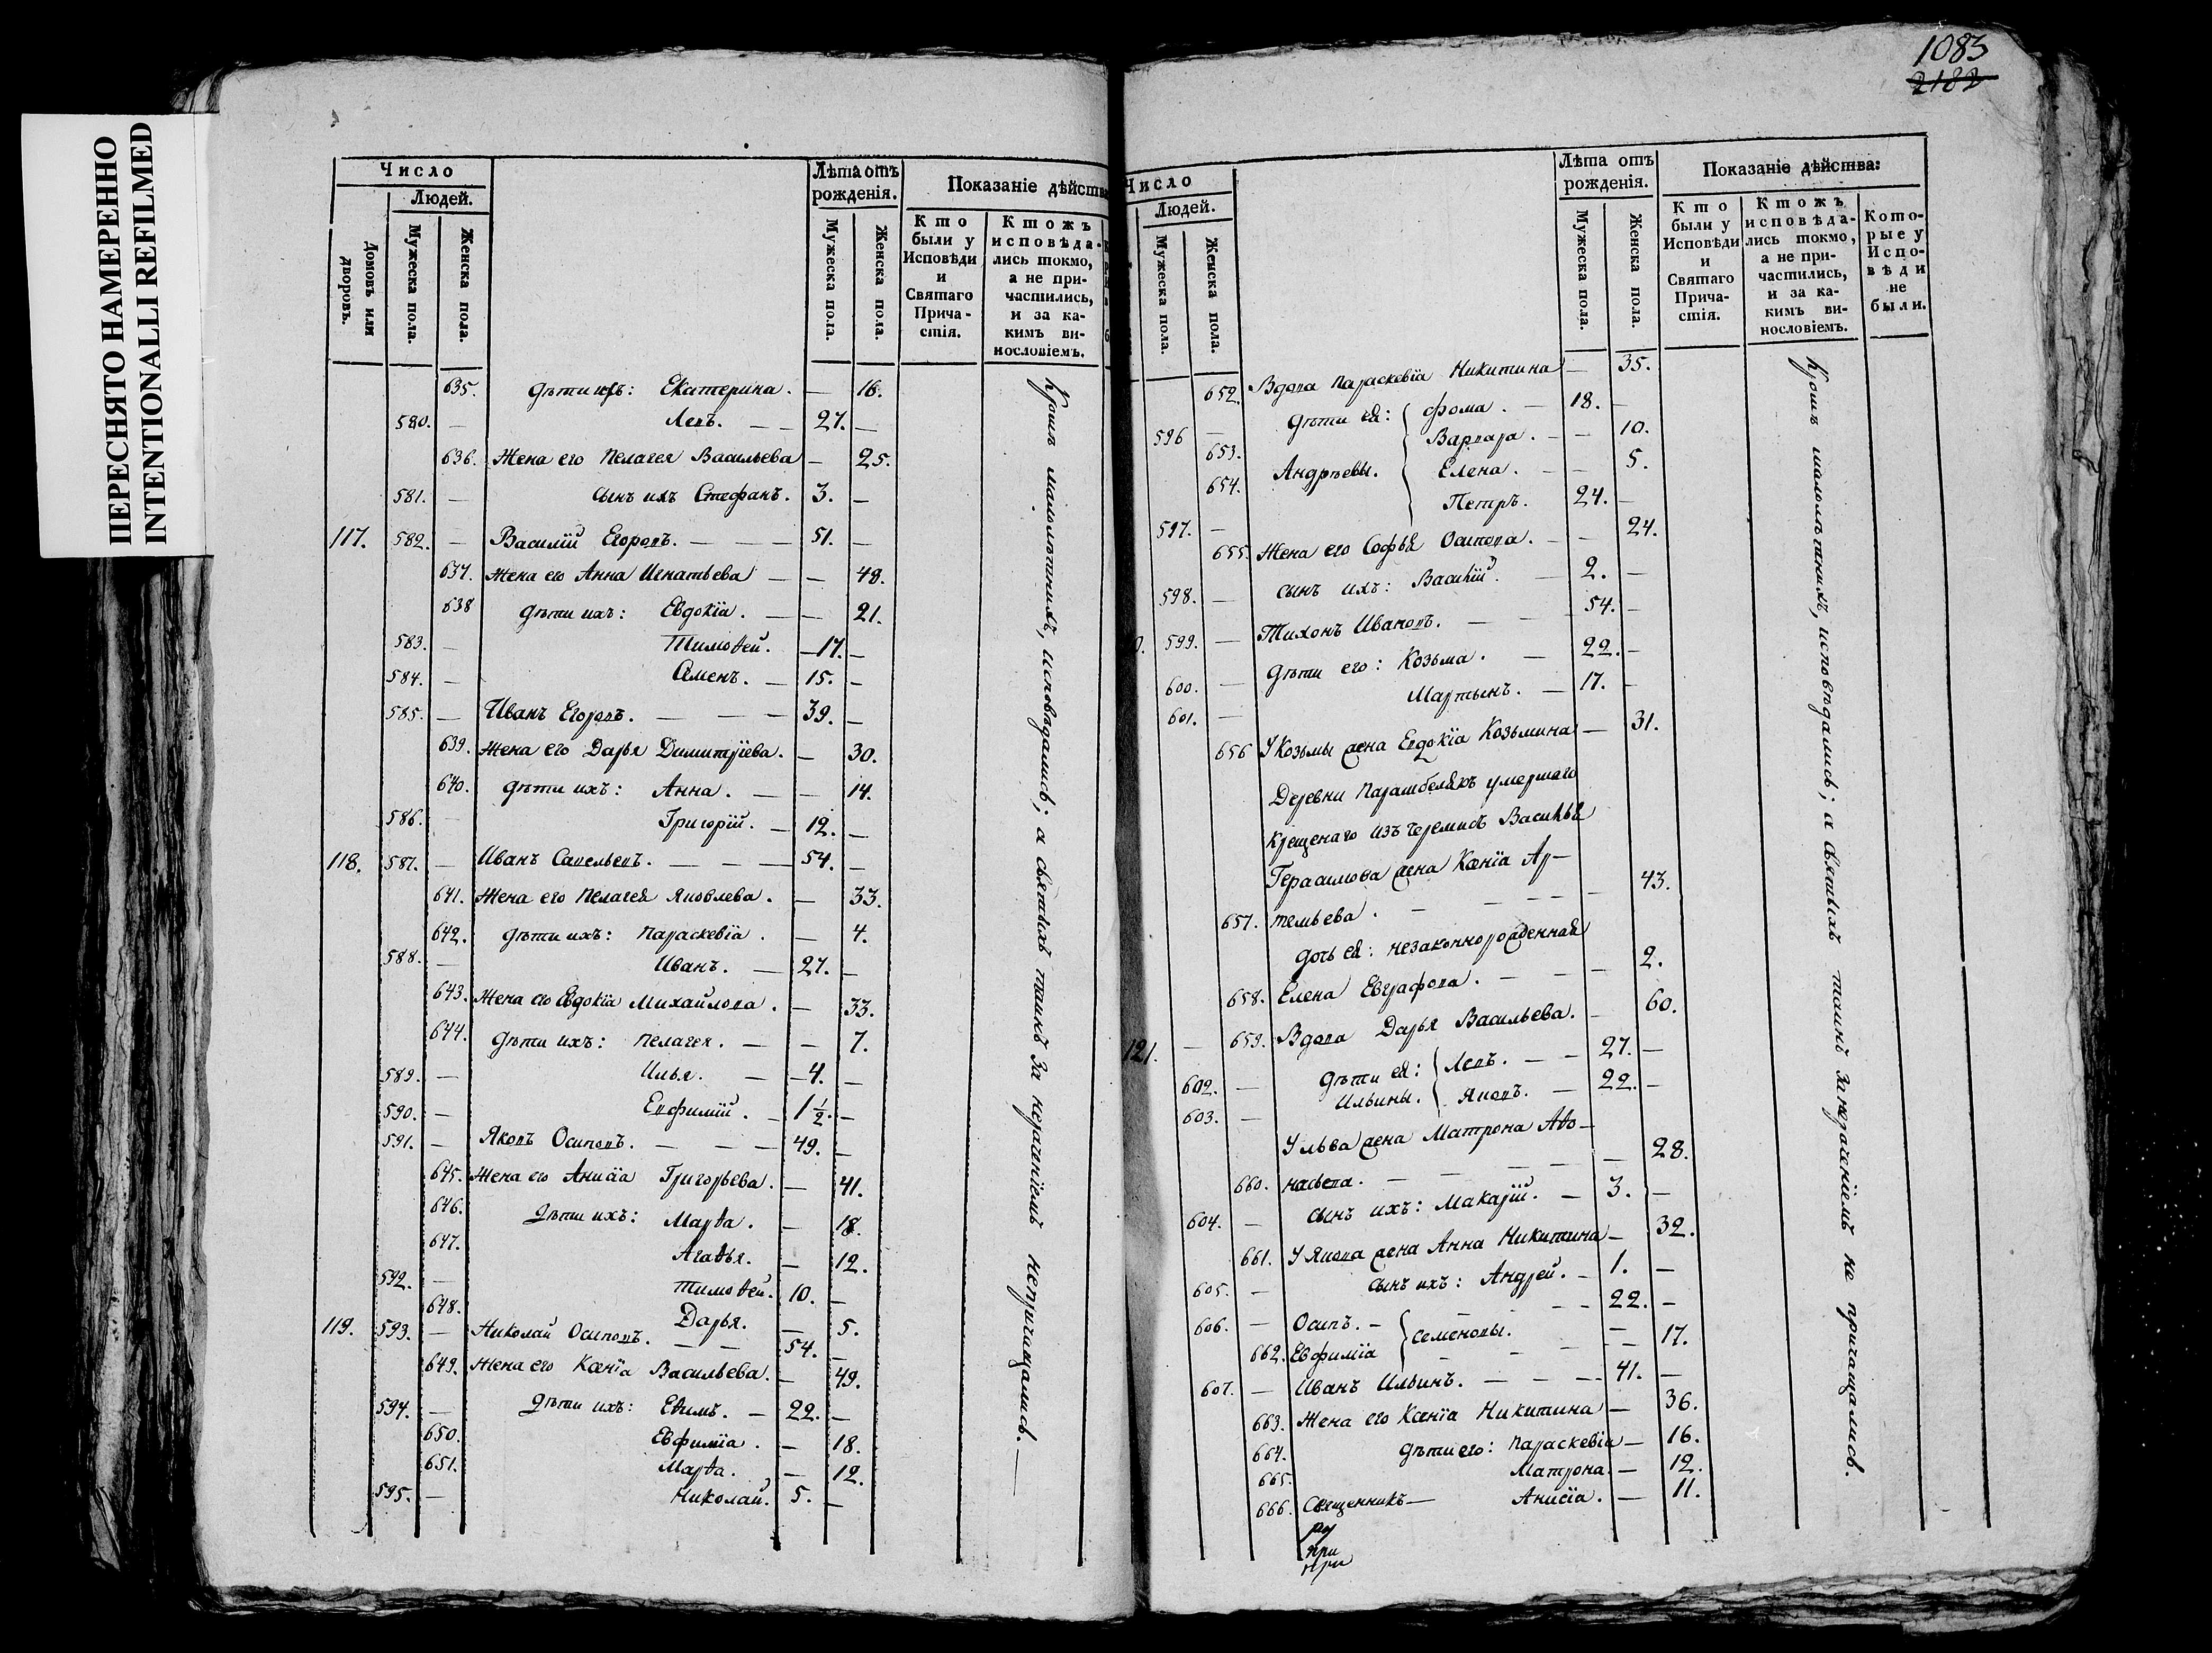 ПЕРЕСНЯТО НАМЕРЕННО
INTENTIONALLI REFILMED
Число
Людей.
Домовъ или дворовъ.
Мужеска пола.
Женска пола.
Лѣта отъ рожденія.
Мужеска пола.
Женска пола.
Показаніе дѣйства
Кто были у Исповѣди и Святаго Причастія.
Ктожъ исповѣдались токмо, а не причастились, и за какимъ винословіемъ.
635. дѣти ихъ: Екатерина. — 16.
580. — Левъ. — — 27. —
636. Жена его Пелагея Васильева — 25.
581. — сынъ ихъ Стефанъ. 3. —
117. 582. — Василій Егоровъ. — — — 51. —
637. Жена его Анна Игнатьева — — 48.
638 дѣти ихъ: Евдокїа. — — 21.
583. — Тимоѳей. — 17. —
584. — Семенъ. — 15. —
585. — Иванъ Егоровъ. — — — 39. —
639. Жена его Дарья Димитріева. — 30.
640. дѣти ихъ: Анна. — — 14.
586. — Григорій. — 12. —
118. 587. — Иванъ Савельевъ. — — — 54. —
641. Жена его Пелагея Яковлева. — 33.
642. дѣти ихъ: Параскевіа. — 4.
588. — Иванъ. — 27. —
643. Жена его Евдокїа Михайлова. — 33.
644. дѣти ихъ: Пелагея. — — 7.
589. — Илья. — — 4. —
590. — Евфимій. — 1 1/2. —
591. — Яковъ Осиповъ. — — — 49. —
645. Жена его Анисїа Григорьева. — 41.
646. дѣти ихъ: Марѳа. — 18.
647. Агаѳья. — 12.
592. — Тимоѳей. 10. —
648. Дарья. — 5.
119. 593. — Николай Осиповъ. — — 54. —
649. Жена его Ксенїа Васильева. — 49.
594. — дѣти ихъ: Еѳимъ. — 22. —
650. Евфимїа. — 18.
651. Марѳа. — 12.
595. — Николай. 5. —
Кромѣ малолѣтнихъ, исповѣдались; а святыхъ таинъ за нераченіемъ непричащались. —
1083
2182
Число
Людей.
Мужеска пола.
Женска пола.
Лѣта отъ рожденія.
Мужеска пола.
Женска пола.
Показаніе дѣйства:
Кто были у Исповѣди и Святаго Причастія.
Ктожъ исповѣдались токмо, а не причастились, и за какимъ винословіемъ.
Которые у Исповѣди не были.
652. Вдова Параскевїа Никитина — 35.
596 — дѣти ея: Фома. — 18. —
653. Варвара. — — 10.
654. Андреевы. Елена. — — 5.
597. — Петръ. 24. —
655. Жена его Софья Осипова. — — 24.
598. — сынъ ихъ: Василій. — 2. —
0. 599. — Тихонъ Ивановъ. — — 54. —
600. — дѣти его: Козьма. — 22. —
601. — Мартынъ. — 17. —
656 У Козьмы жена Евдокїа Козьмина — 31.
Деревни Парамбелякъ умершаго
крещенаго изъ черемисъ Василья
Герасимова жена Ксенїа Ар-
657. темьева. — — — — — 43.
дочь ея: незаконнорожденная
658. Елена Евграфова. — — — 2.
121. — 659. Вдова Дарья Васильева. — 60.
602. — дѣти ея: Левъ. — — 27. —
603. — Ильины. Яковъ. — 22. —
У Льва жена Матрона Аѳо-
660. насьева. — — — — 28.
604. — сынъ ихъ: Макарій. — 3. —
661. У Якова жена Анна Никитина — 32.
605. — сынъ ихъ: Андрей. — 1. —
606. — Осипъ. — — — 22. —
662. Евфимїа Семеновы. — — — 17.
607. — Иванъ Ильинъ. — — — 41. —
663. Жена его Ксенїа Никитина — 36.
664. дѣти его: Параскевїа — 16.
665. Матрона. — 12.
666. Анисїа. — 11.
Священникъ —
Кромѣ малолѣтнихъ, исповѣдались; а святыхъ таинъ за нераченіемъ не причащались.